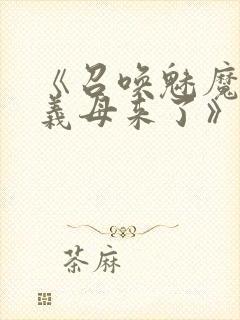 《召唤魅魔
義母来了》
茶麻